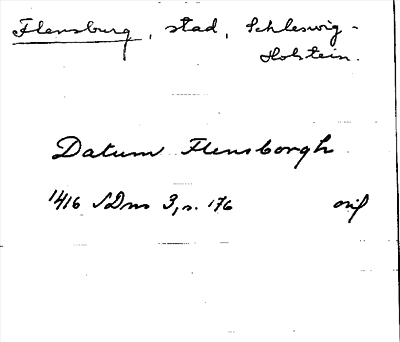 Flensburg, stad, Schleswig-
Holstein.
Datum Flensborgh
1416 SDns 3, s. 176 orig